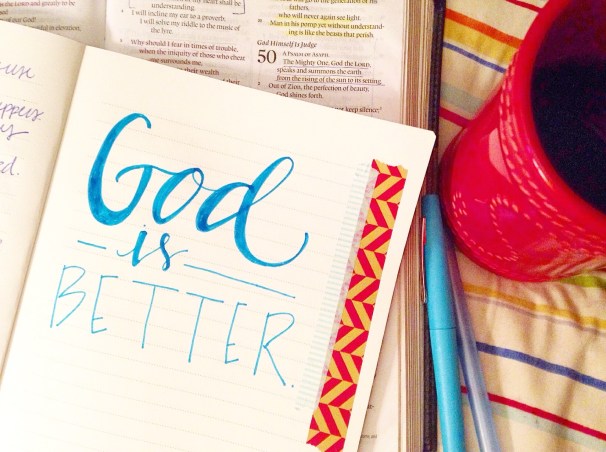 the LORD and greatly to be
of our God!
in elevation,
heart shall be
understanding.
I will incline my ear to a proverb;
I will solve my riddle to the music of
the lyre.
Why should I fear in times of trouble,
when the iniquity of those who cheat
me surrounds me,
their wealth
to the generation of his
fathers,
who will never again see light.
Man in his pomp yet without understand-
ing is like the beasts that perish.
God Himself Is Judge
50 A PSALM OF ASAPH.
The Mighty One, God the LORD,
speaks and summons the earth
from the rising of the sun to its setting.
Out of Zion, the perfection of beauty,
God shines forth.
not keep silence;
God
is
BETTER.